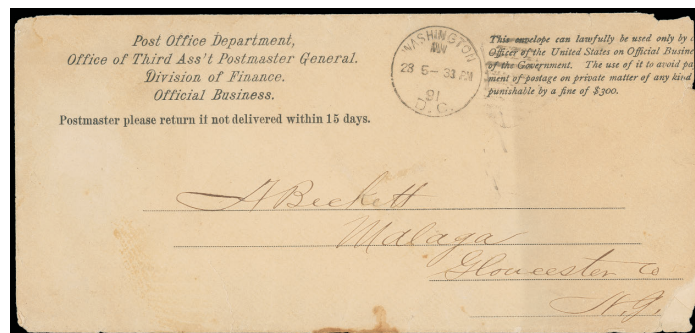 Post Office Department,
Office of Third Ass't Postmaster General.
Division of Finance.
Official Business.
Postmaster please return if not delivered within 15 days.
WASHINGTON
28 5-33 PM
91
D.C.
This envelope can lawfully be used only by
Officer of the United States on Official Busine
of the Government. The use of it to avoid pa
ment of postage on private matter of any kind
punishable by a fine of $300.
A Beckett
Malaga
Gloucester Co
N.J.